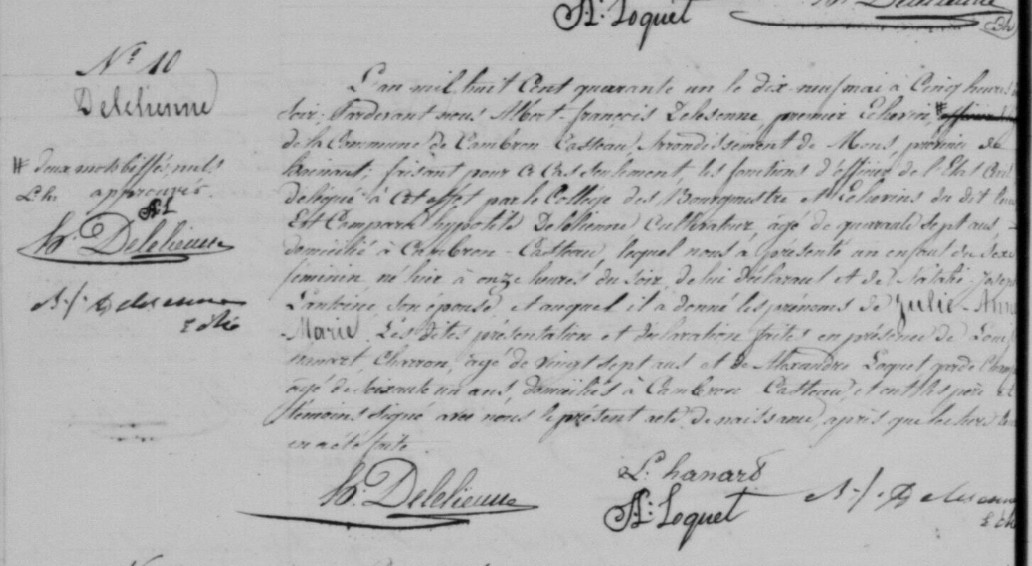 A: Loquet
N° 10
Delchienne
# deux mots biffés nuls
L. h. approuvés
A L
h. Delchienne
L'an mil huit Cent quarante un le dix-neuf mai à Cinq heures
Soir, Pardevant nous Albert-françois premier Echevin #
de la Commune de Cambron Casteau Arrondissement de Mons, province de
hainaut, faisant pour ce Cas seulement, les fonctions d'officier de l'Etat Civil
délégué à Cet effet par le Collège des Bourgmestre et Echevins du dit lieu
Est Comparu hypolite Delchienne Cultivateur, âgé de quarante sept ans
domicilié à Cambron-Casteau, lequel nous a présenté un enfant du sexe
feminin, né hier à onze heures du soir, de lui déclarant et de Natalie Joseph
son épouse, et auquel il a donné les prénoms de Julie-Anne
Marie. Les dites présentation et déclaration faites en présence de Louis
hanart, Charron, âgé de vingt sept ans et de Alexandre Loquet garde Champ
âgé de soixante un ans, domiciliés à Cambron Casteau, et ont les père et
témoins signé avec nous le présent acte de naissance, après que lecture leur
en a été faite
h. Delchienne
L. hanard
A: Loquet